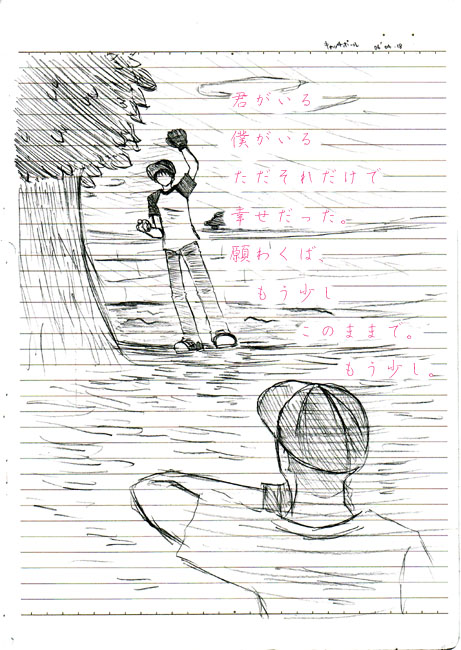 キャッチボール 06'04.18
君がいる
僕がいる
ただそれだけで
幸せだった。
願わくば、
もう少し
このままで。
もう少し。